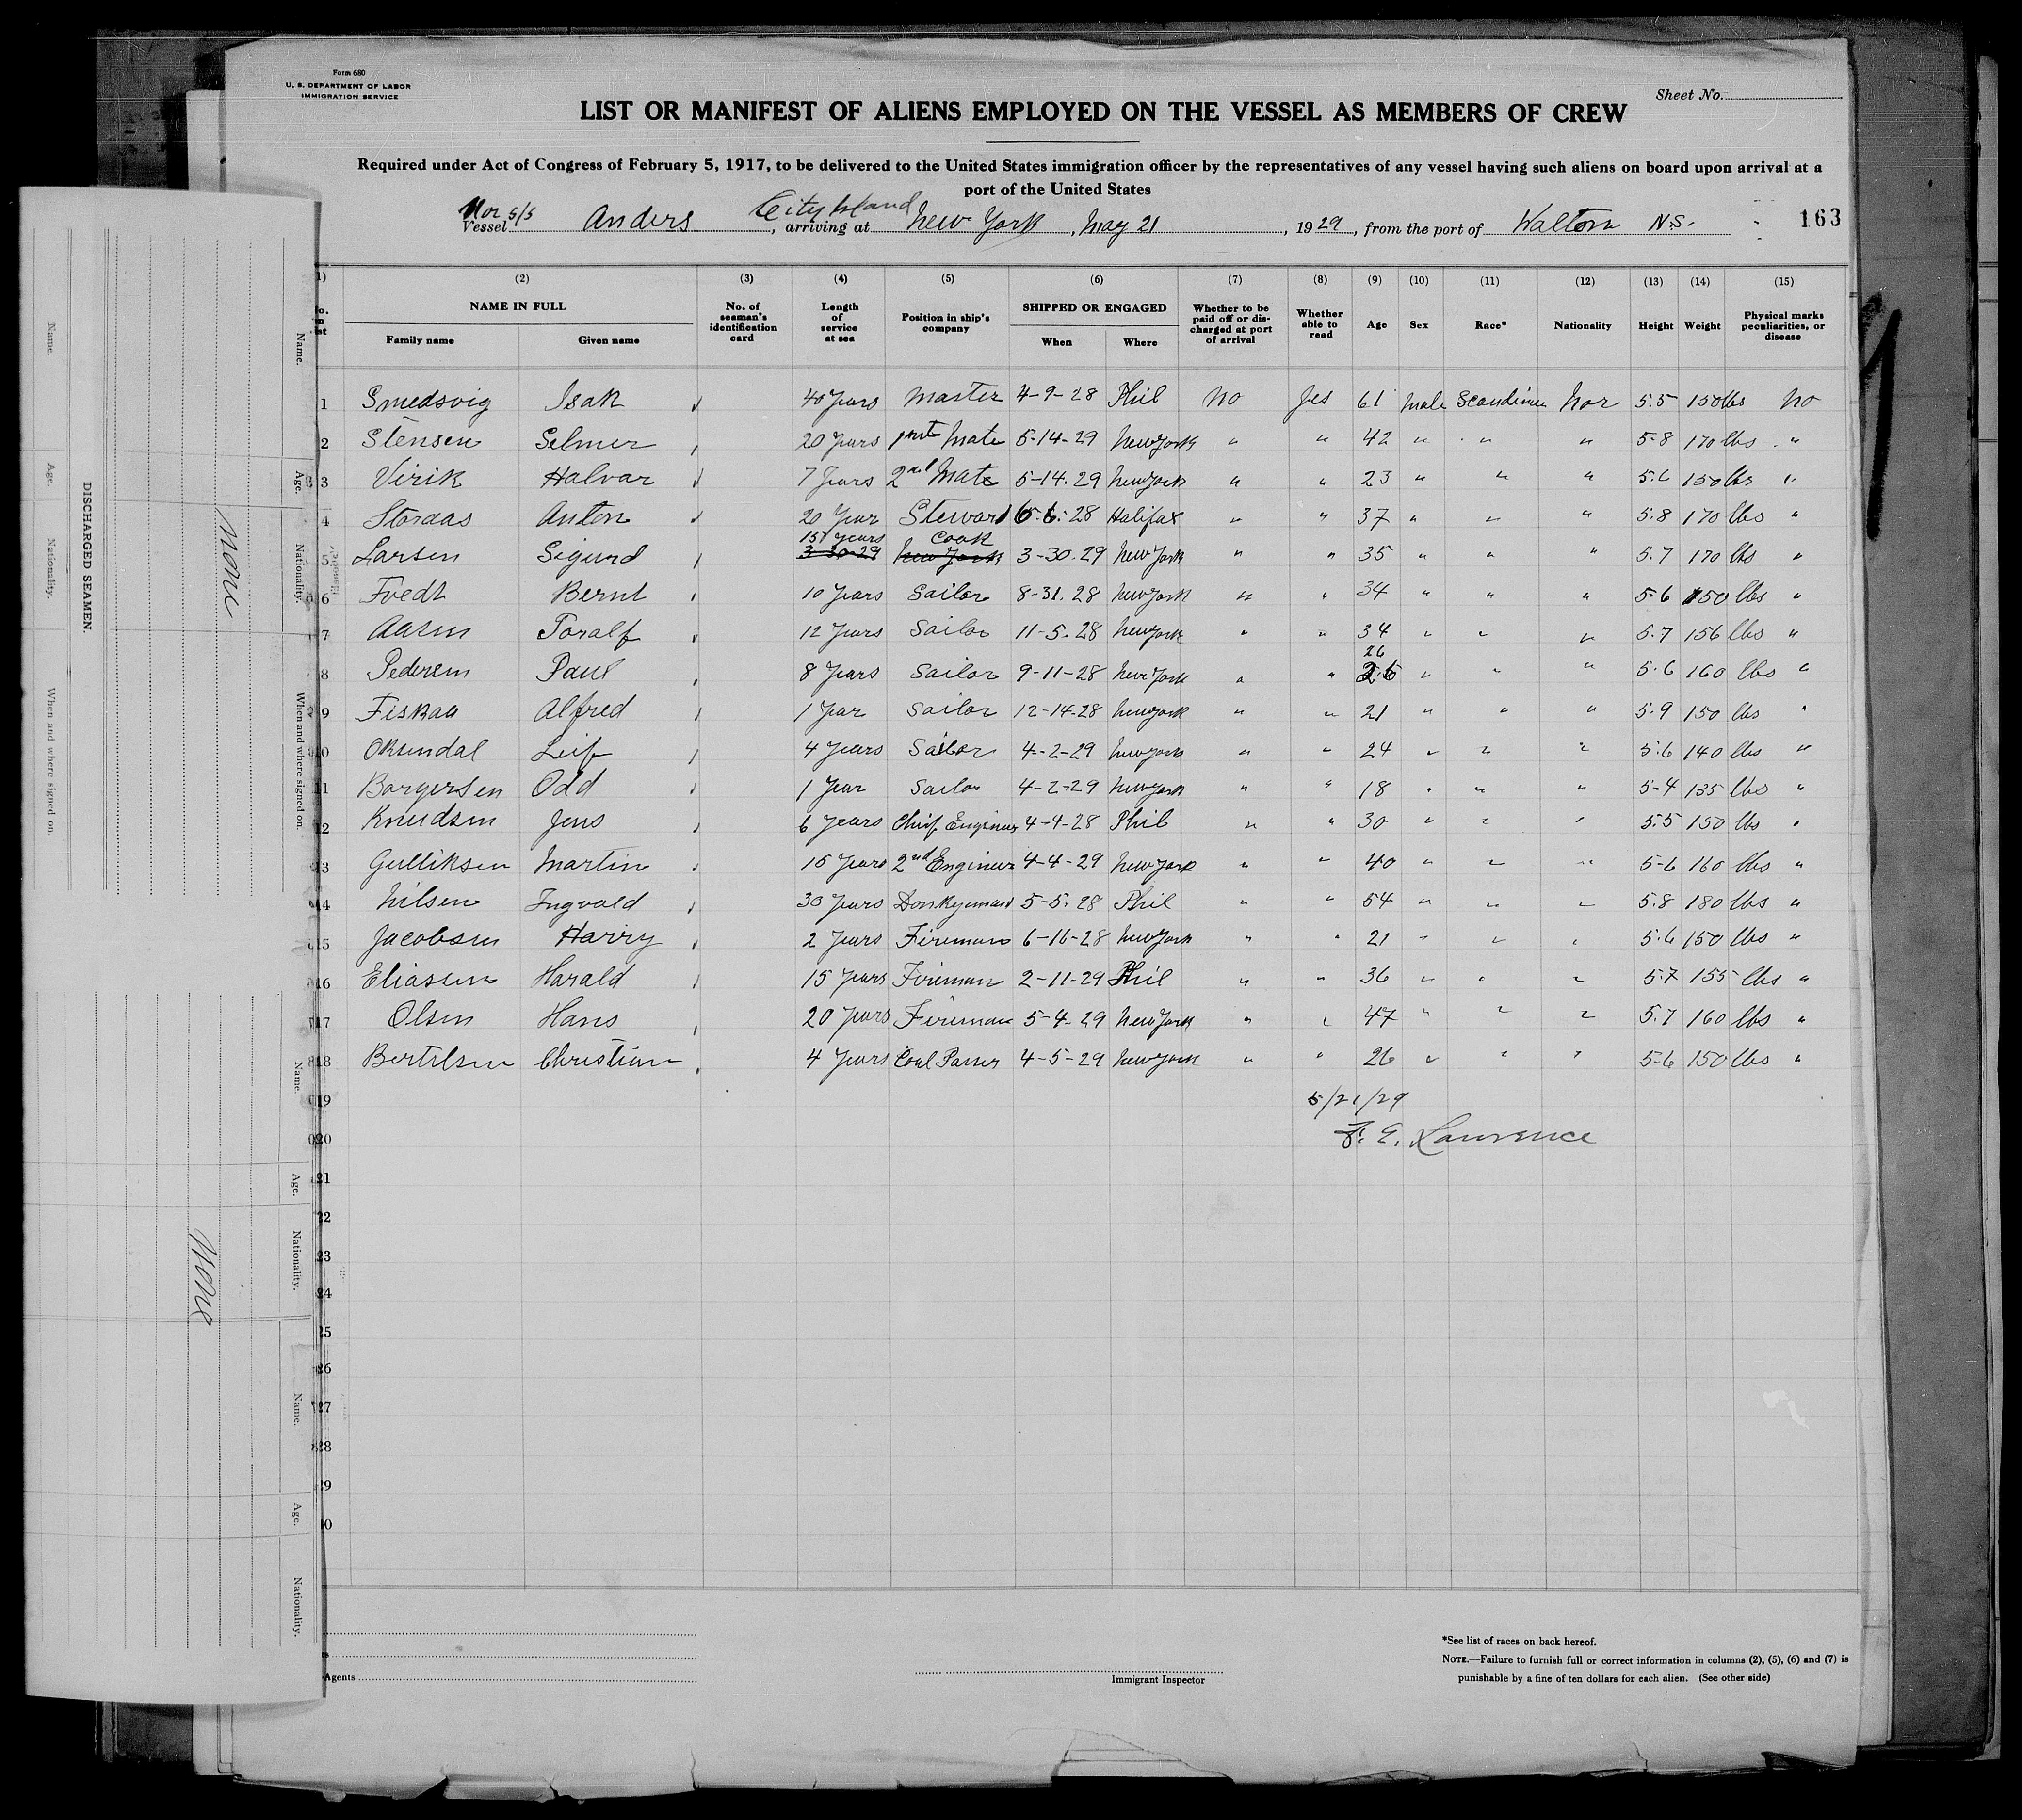 Form 680
U. S. DEPARTMENT OF LABOR
IMMIGRATION SERVICE
Sheet No.
LIST OR MANIFEST OF ALIENS EMPLOYED ON THE VESSEL AS MEMBERS OF CREW
Required under Act of Congress of February 5, 1917, to be delivered to the United States immigration officer by the representatives of any vessel having such aliens on board upon arrival at a
port of the United States
Nor s/s City Island
Vessel Anders, arriving at New York, May 21, 1929, from the port of Walton N.S. 163
(2) (3) (4) (5) (6) (7) (8) (9) (10) (11) (12) (13) (14) (15)
NAME IN FULL No. of seaman's identification card Length of service at sea Position in ship's company SHIPPED OR ENGAGED Whether to be paid off or discharged at port of arrival Whether able to read Age Sex Race* Nationality Height Weight Physical marks peculiarities, or disease
Family name Given name When Where
1 Smedsvig Isak 40 Years Master 4-9-28 Phil No Yes 61 Male Scandinav Nor 5.5 150 lbs No
2 Stensen Selmer 20 Years 1st Mate 5-14-29 New York " " 42 " " " 5-8 170 lbs "
3 Virik Halvar 7 Years 2nd Mate 5-14-29 New York " " 23 " " " 5.6 150 lbs "
4 Storaas Anton 20 Year Steward 6-6-28 Halifax " " 37 " " " 5.8 170 lbs "
15 Years Cook
5 Larsen Sigurd 3-30-29 New York 3-30-29 New York " " 35 " " " 5.7 170 lbs "
6 Fvedt Bernt 10 Years Sailor 8-31-28 New York " " 34 " " " 5-6 150 lbs "
7 Aasen Toralf 12 Years Sailor 11-5-28 New York " " 34 " " " 5.7 156 lbs "
26
8 Pedersen Paul 8 Years Sailor 9-11-28 New York " " " " " 5.6 160 lbs "
9 Fiskaa Alfred 1 Year Sailor 12-14-28 New York " " 21 " " " 5.9 150 lbs "
10 Oksendal Leif 4 Years Sailor 4-2-29 New York " " 24 " " " 5.6 140 lbs "
11 Borgersen Odd 1 Year Sailor 4-2-29 New York " " 18 " " " 5-4 135 lbs "
12 Knudsen Jens 6 Years Chief Engineer 4-4-28 Phil " " 30 " " " 5.5 150 lbs "
13 Gulliksen Martin 15 Years 2nd Engineer 4-4-29 New York " " 40 " " " 5-6 160 lbs "
14 Nilsen Ingvald 30 Years Donkeyman 5-5-28 Phil " " 54 " " " 5.8 180 lbs "
15 Jacobsen Harry 2 Years Fireman 6-16-28 New York " " 21 " " " 5.6 150 lbs "
16 Eliassen Harald 15 Years Fireman 2-11-29 Phil " " 36 " " " 5.7 155 lbs "
17 Olsen Hans 20 Years Fireman 5-4-29 New York " " 47 " " " 5.7 160 lbs "
18 Bertelsen Christian 4 Years Coal Passer 4-5-29 New York " " 26 " " " 5-6 150 lbs "
19 5/21/29
20 F. E. Lawrence
21
22
23
24
25
26
27
28
29
Agents
Immigrant Inspector
*See list of races on back hereof.
NOTE.—Failure to furnish full or correct information in columns (2), (5), (6) and (7) is
punishable by a fine of ten dollars for each alien. (See other side)
DISCHARGED SEAMEN.
Name. Age. Nationality. When and where signed on.
Name. Age. Nationality. When and where signed on.
None
Name. Age. Nationality.
Name. Age. Nationality.
None